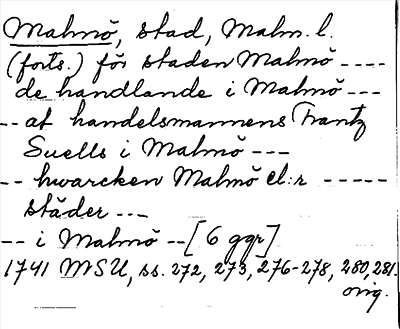 Malmö, stad, Malm. l.
(forts.) för staden Malmö ----
de handlande i Malmö ---
-- af handelsmannens Frantz
Suells i Malmö ---
-- hwarcken Malmö el:r -----
städer ---
-- i Malmö --[6 ggr]
1741 MSU, ss. 272, 273, 276-278, 280, 281.
orig.